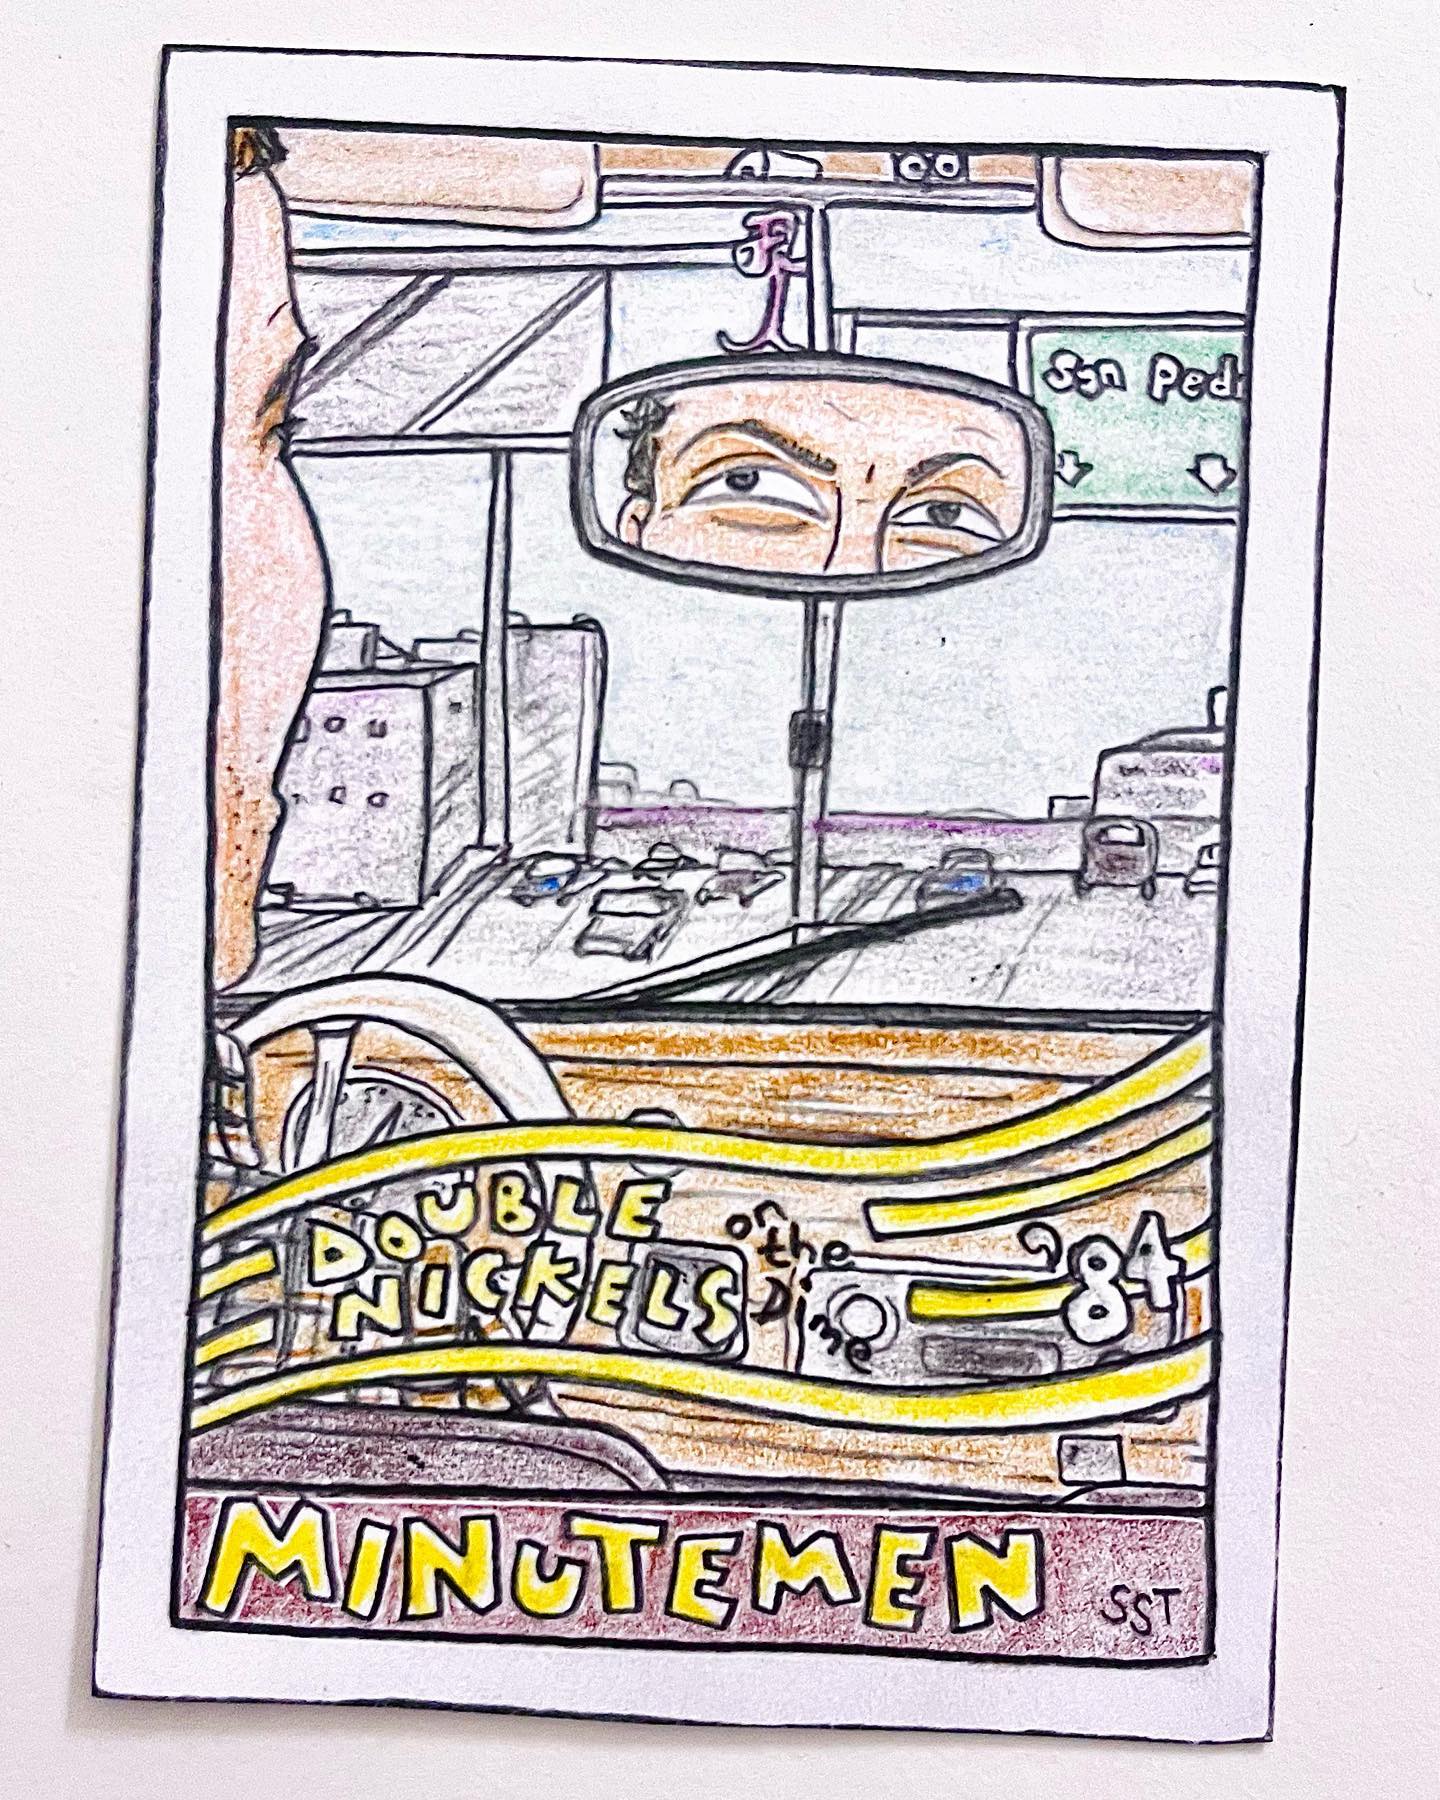 San Ped
DOUBLE
NICKELS
on
the
Dime
'84
MINUTEMEN
SST